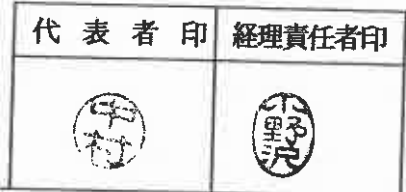 代表者印 経理責任者印
中村
小野沢